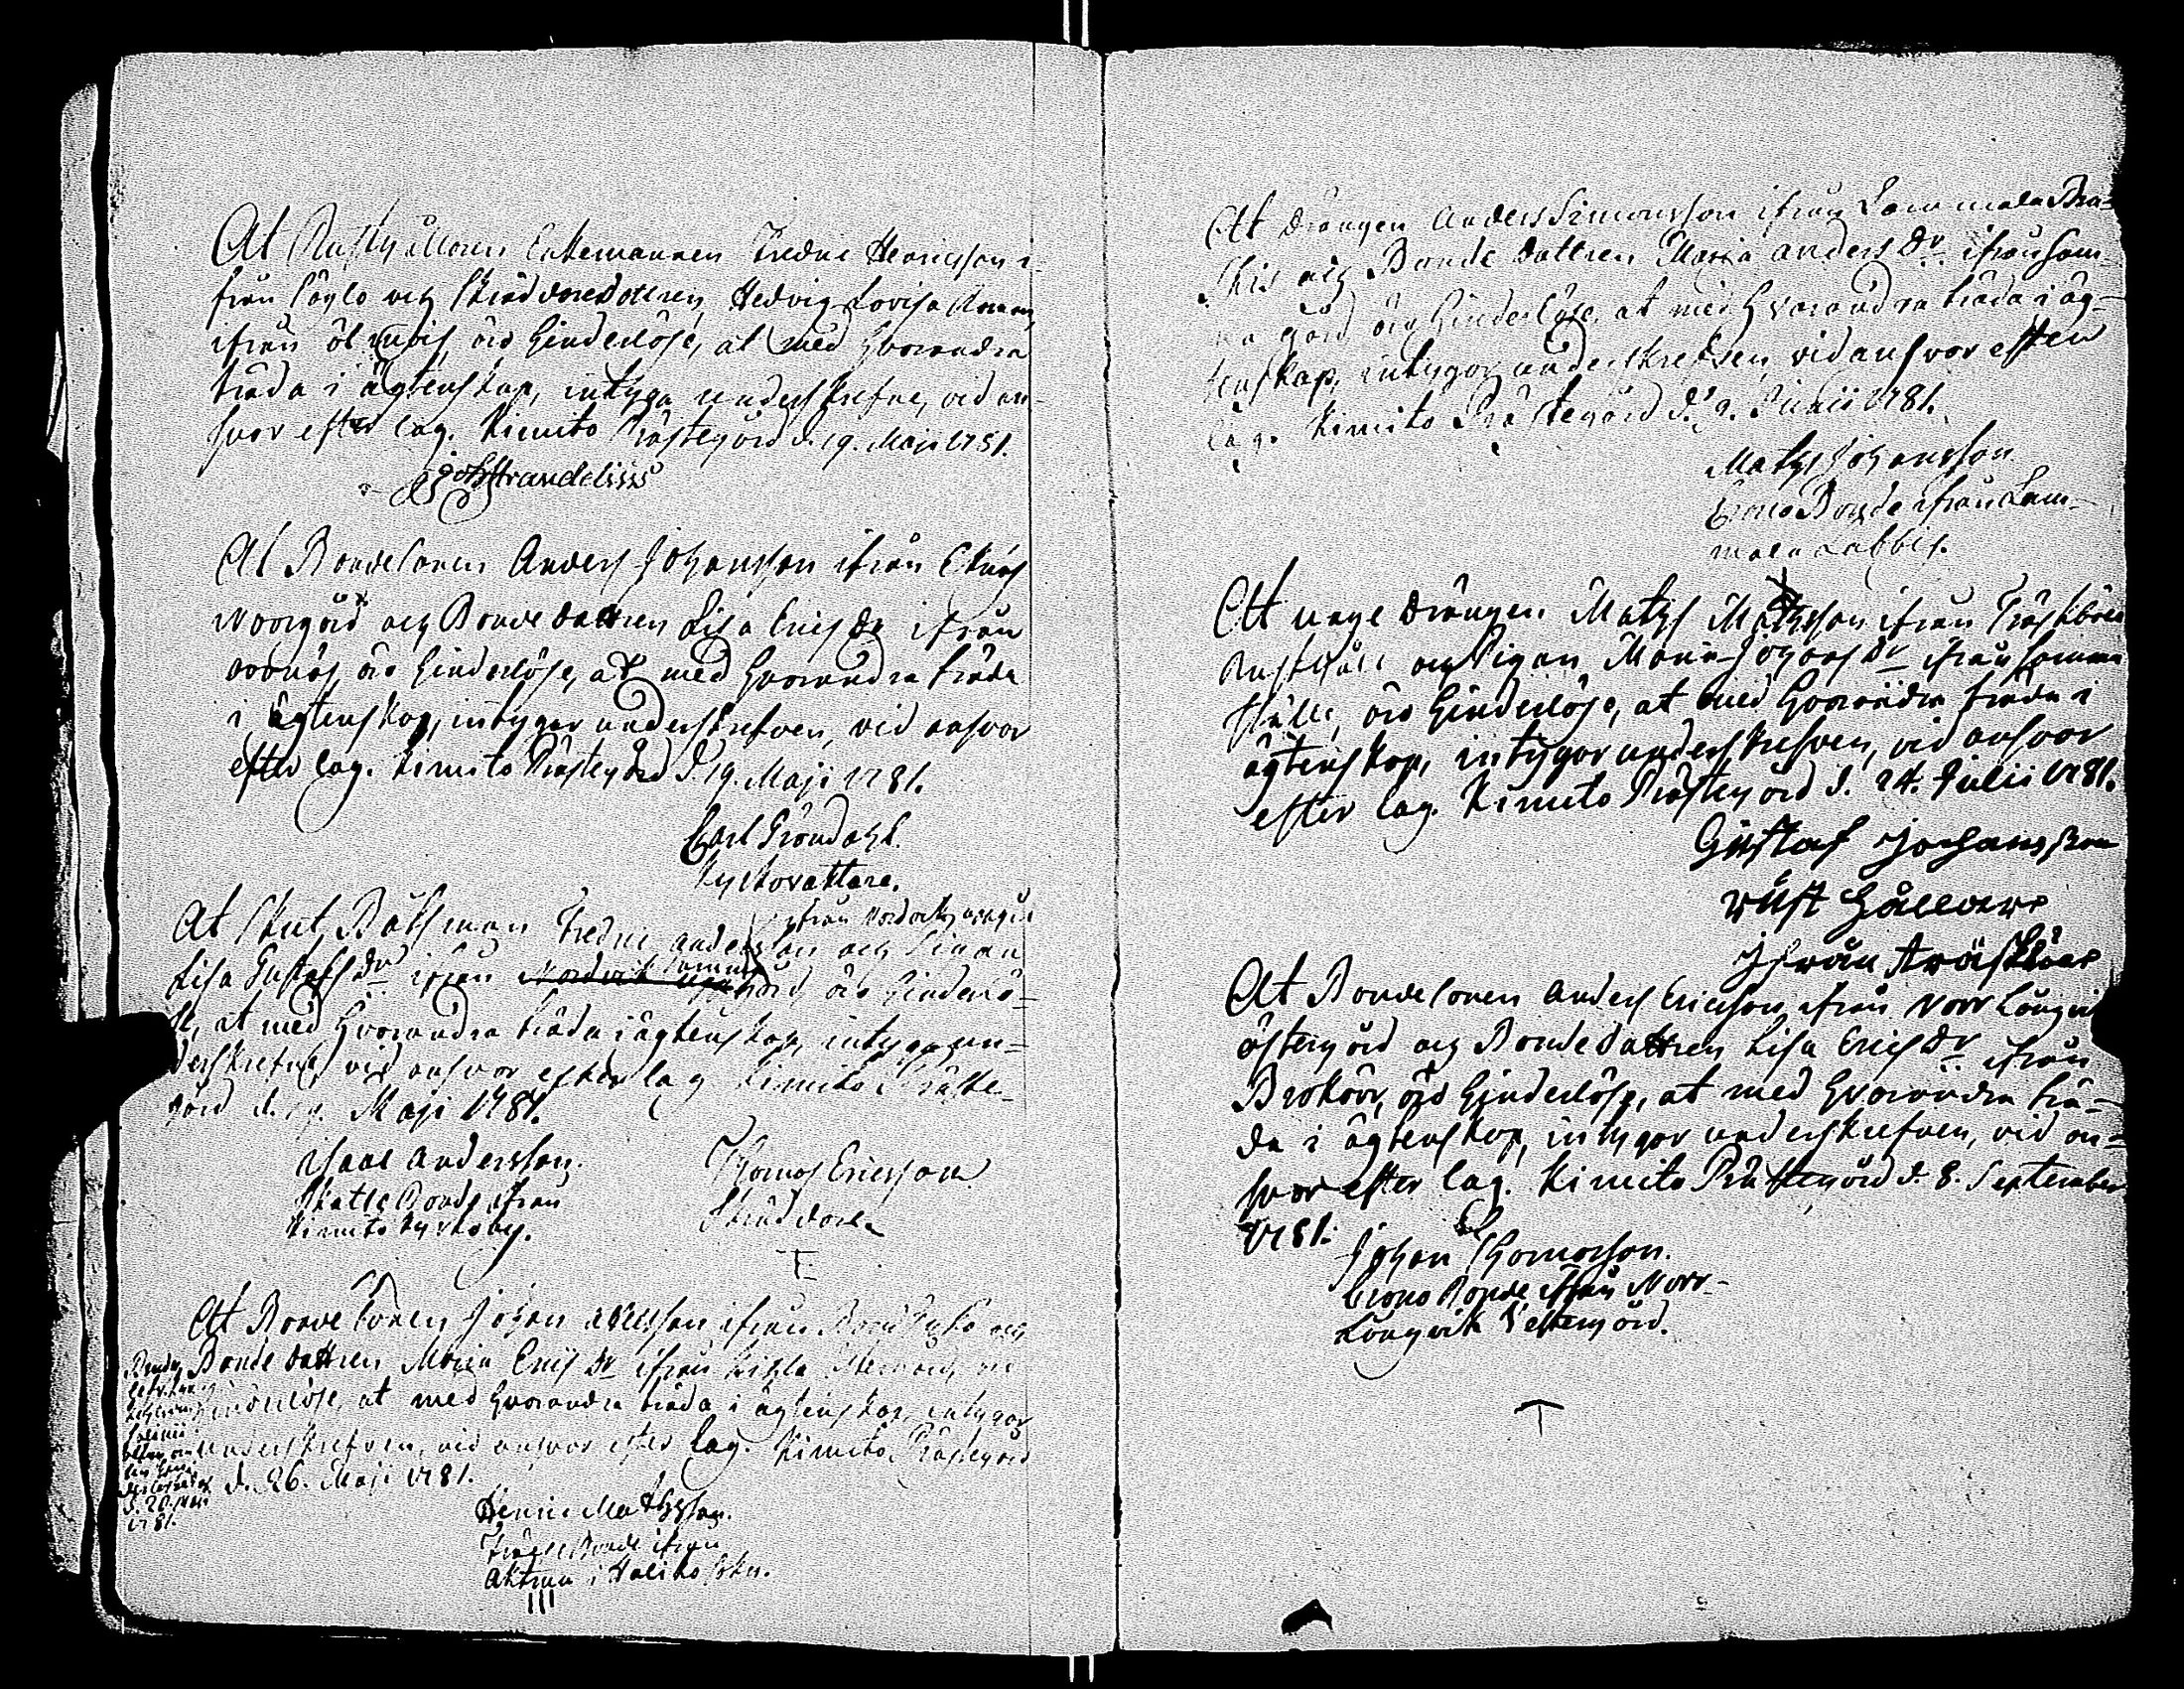 At Rusthållaren Enkemannen Fredric Henricsson i-
från Pöylö och Skräddaredottren Hedvig Lovisa
ifrån Ölmois, äro hinderlöse, at med hvarandra
träda i ägtenskap, intyga underskrefne, vid an-
svar efter lag. Kimito Prästegård d. 19. Maji 1781.
Joh Strandelius
At Bondesonen Anders Johansson ifrån Eknäs
Norrgård och Bondedottren Lisa Ericsdr ifrån
äro hinderlöse, at med hvarandra träda
i ägtenskap, intygar underskrefven, vid ansvar
efter lag. Kimito Prästegård d. 19. Maji 1781.
Carl Gröndahl.
Kyrkovaktare.
At Skut Båtsman Fredric Andersson ifrån och Pigan
Lisa Gustafsdr ifrån Nordvik samma gård äro hinderlö-
se, at med hvarandra träda i ägtenskap, intyga un-
derskrefne, vid ansvar efter lag Kimito Präste-
gård d. 19. Maji 1781.
Isaac Andersson.
Skatte Bonde ifrån
Kimito Kyrkoby.
Thomas Ericsson
Skräddare
At Bondesonen Johan ifrån och
Bondedottren Maria Ericsdr ifrån äro
hinderlöse, at med hvarandra träda i ägtenskap, intygar
underskrefven, vid ansvar efter lag. Kimito Prästegård
d. 26. Maji 1781.
d. 20. Maji
1781.
Henric Mathsson.
Frälse Bonde ifrån
i Haliko Sokn.
At Drängen Anders Simonsson ifrån Lammala
och Bondedottren Maria Andersdr ifrån sam-
ma gård äro hinderlöse, at med hvarandra träda i äg-
tenskap, intygar underskrefven, vid ansvar efter
lag. Kimito Prästegård d. 9. Junii 1781.
Mats Johansson
Crono Bonde ifrån Lam-
mala Labbes.
At unge Drängen Mats Matsson ifrån Träskböle
Rusthåll och Pigan Maria Johansdr ifrån samma
ställe, äro hinderlöse, at med hvarandra träda i
ägtenskap, intygar underskrefven, vid ansvar
efter lag. Kimito Prästegård d. 24. Julii 1781.
Gustaf Johansson
rust hållare
ifrån Träskböle
At Bondesonen Anders Ericsson ifrån Norr Långvik
östergård och Bondedottren Lisa Ericsdr ifrån
Brokärr, äro hinderlöse, at med hvarandra trä-
da i ägtenskap, intygar underskrefven, vid an-
svar efter lag. Kimito Prästegård d. 8. September
1781.
Johan Thomasson.
Crono Bonde ifrån Norr-
Långvik Vestergård.